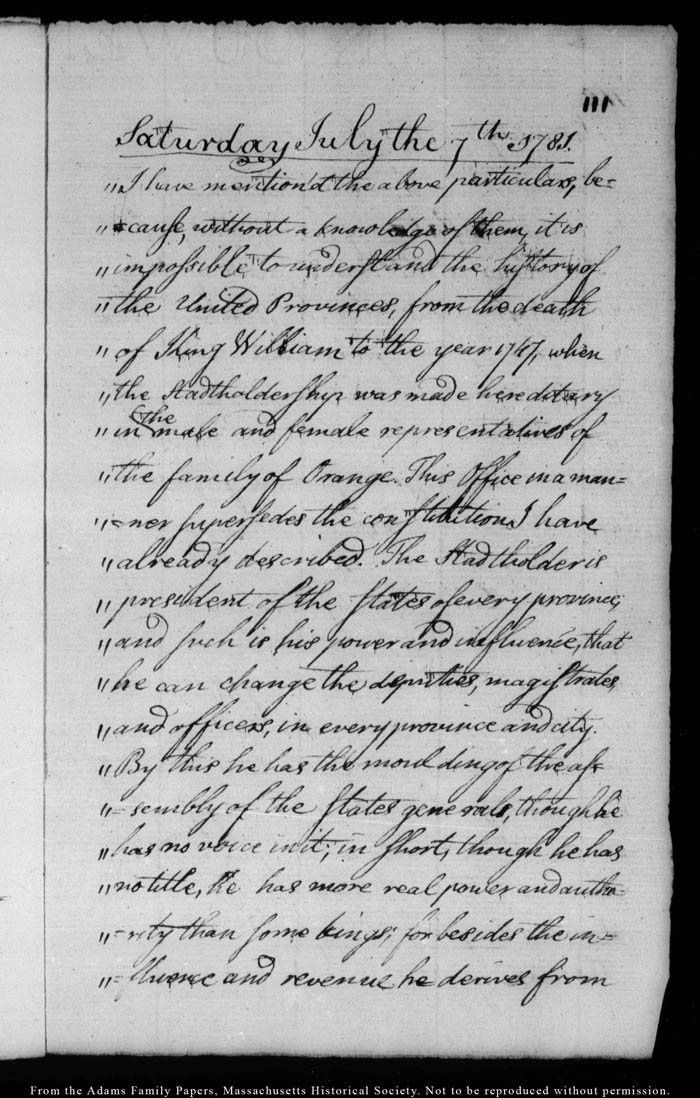 111
Saturday July the 7th. 1781.
"I have mention'd the above particulars, be=
"=cause, without a knowledge of them, it is
"impossible to understand the history of
"the United Provinces, from the death
"of King William to the year 1747, when
"the Stadtholdership was made hereditary
the
"in male and female representatives of
"the family of Orange. This Office in a man=
"=ner supersedes the constitution I have
"already described. The Stadtholder is
"president of the States of every province;
"and such is his power and influence, that
"he can change the deputies, magistrates,
"and officers, in every province and city.
"By this he has the moulding of the as=
"=sembly of the States generals, though he
"has no voice in it; in short, though he has
"no title, he has more real power and autho=
"=rity than some kings; for besides the in=
"=fluence and revenue he derives from
From the Adams Family Papers, Massachusetts Historical Society. Not to be reproduced without permission.